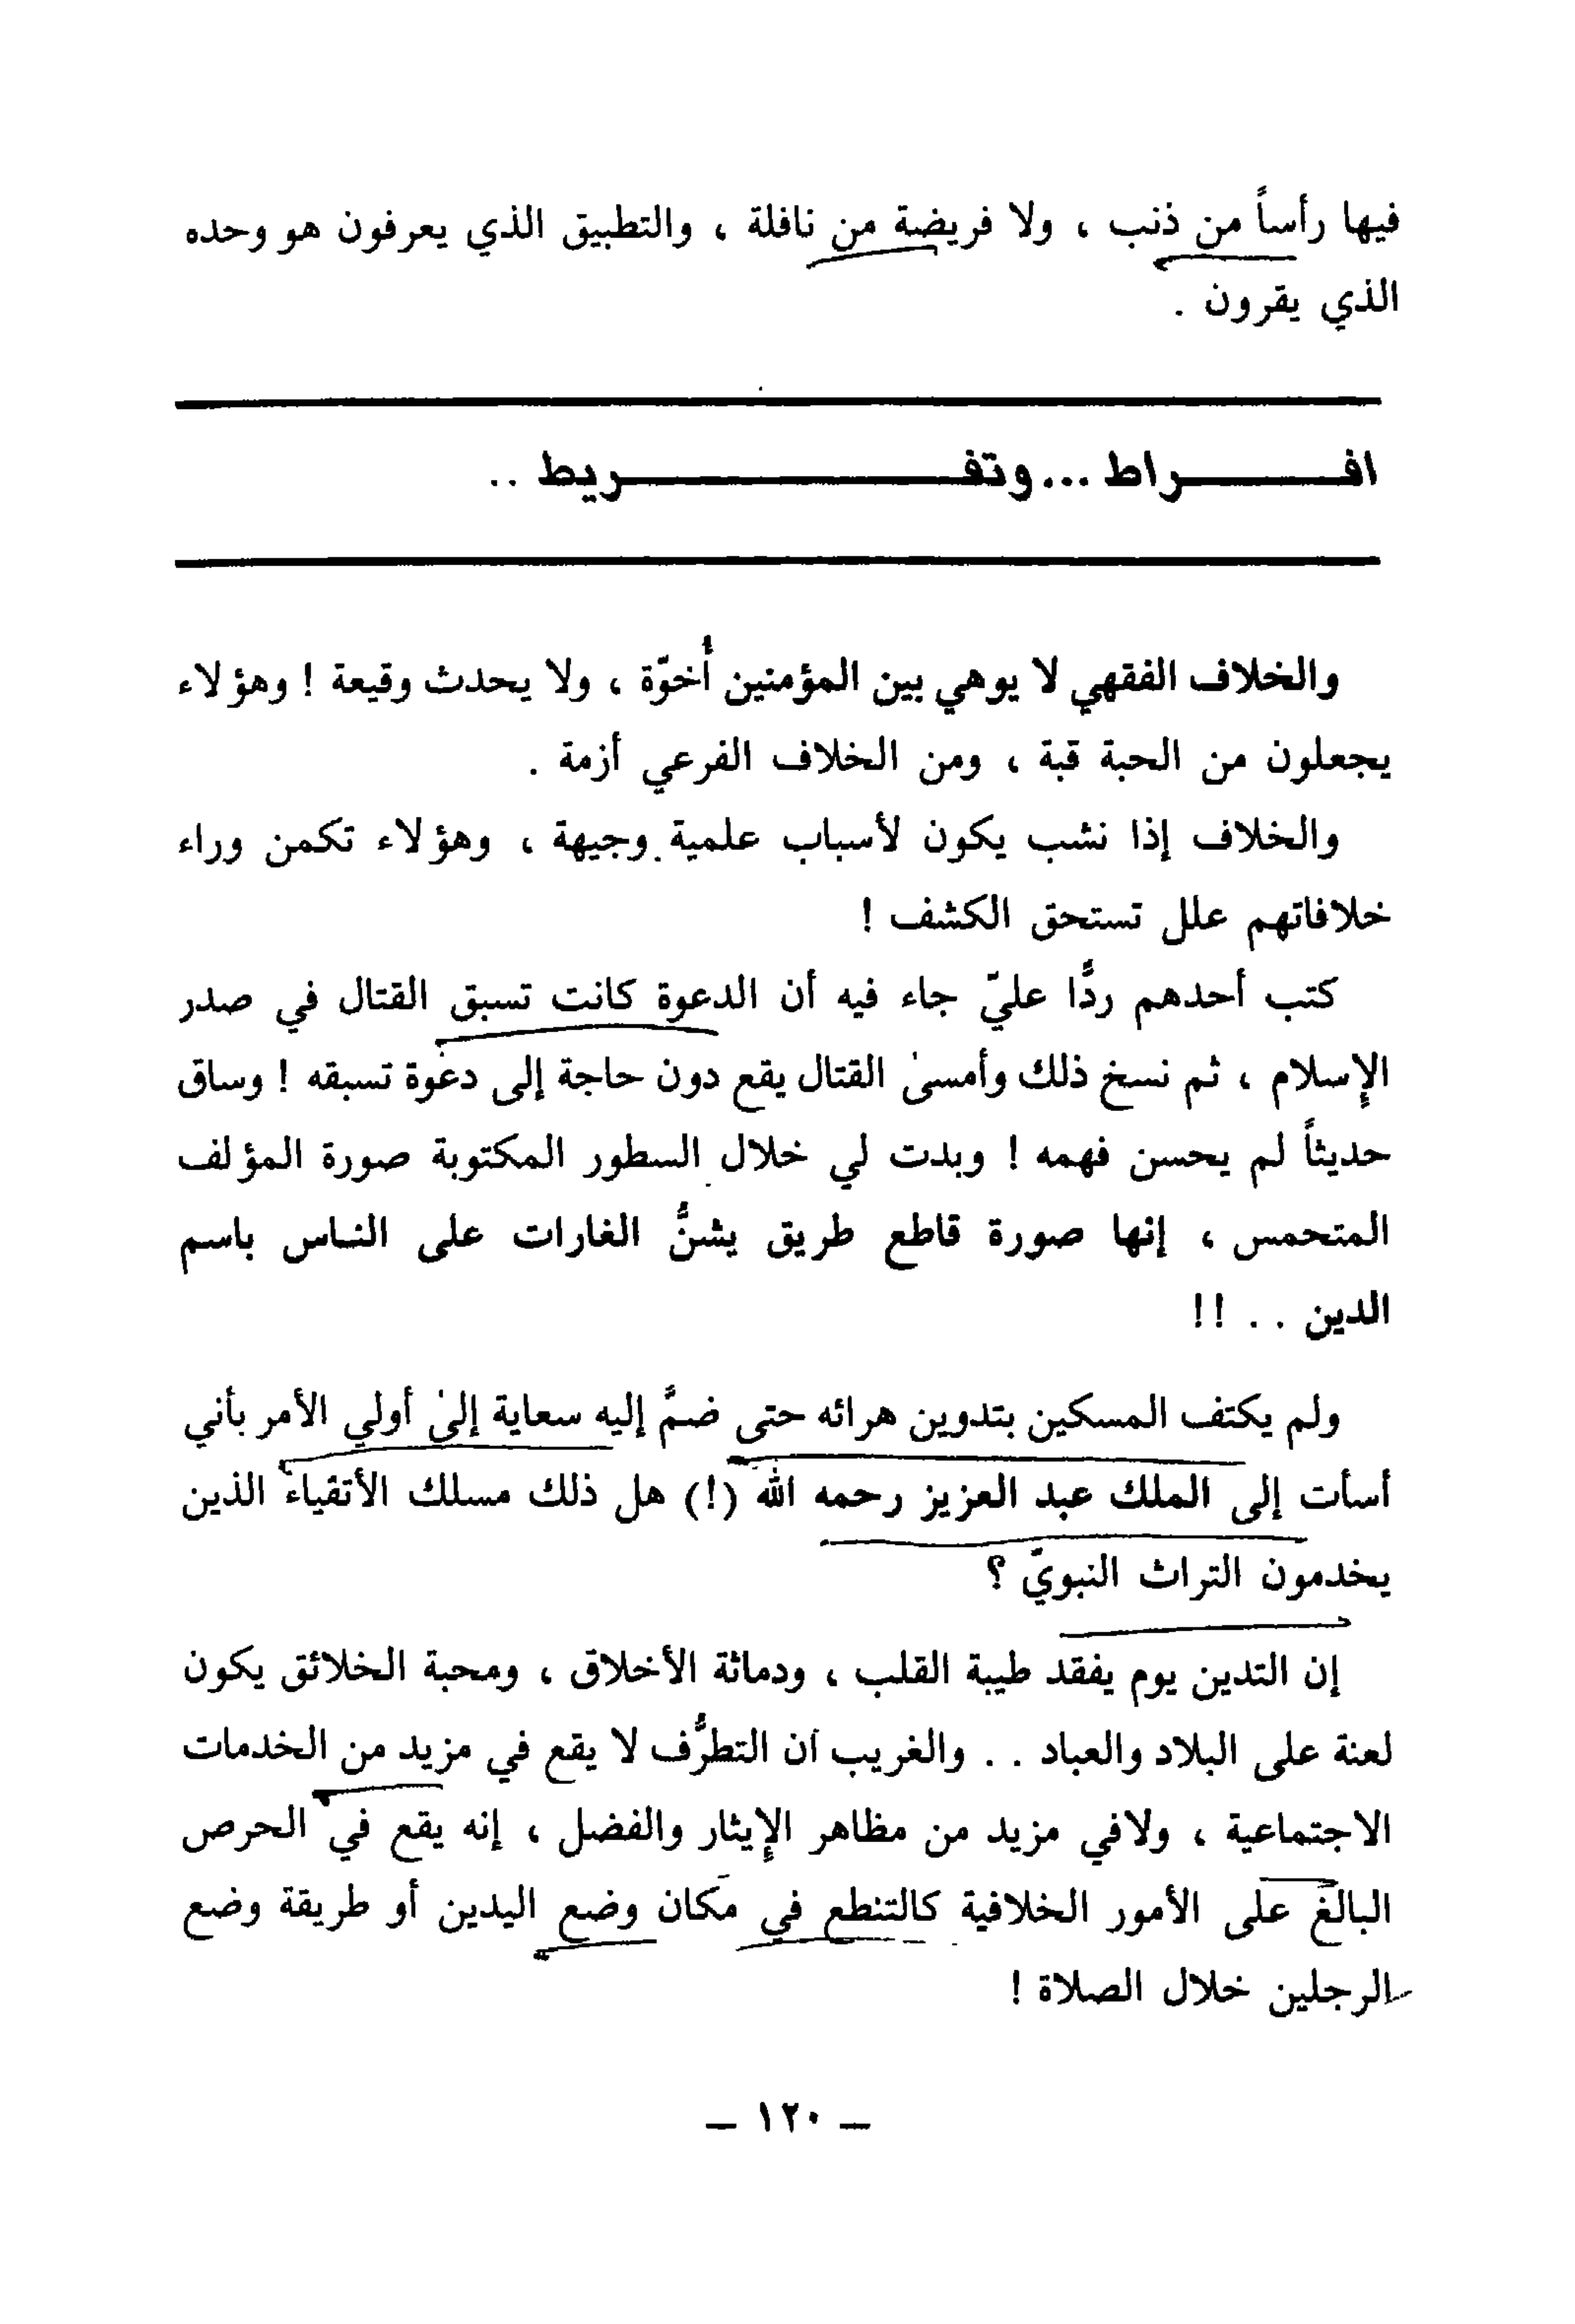 فيها رأساً من ذنب ، ولا فريضة من نافلة ، والتطبيق الذي يعرفون هو وحده
الذي يقرون .
افـــراط ...وتفـــريط ..
والخلاف الفقهي لا يوهي بين المؤمنين أُخوّة ، ولا يحدث وقيعة ! وهؤلاء
يجعلون من الحبة قبة ، ومن الخلاف الفرعي أزمة .
والخلاف إذا نشب يكون لأسباب علمية وجيهة ، وهؤلاء تكمن وراء
خلافاتهم علل تستحق الكشف !
كتب أحدهم ردًّا عليّ جاء فيه أن الدعوة كانت تسبق القتال في صدر
الإسلام ، ثم نسخ ذلك وأمسىٰ القتال يقع دون حاجة إلى دعوة تسبقه ! وساق
حديثاً لم يحسن فهمه ! وبدت لي خلال السطور المكتوبة صورة المؤلف
المتحمس ، إنها صورة قاطع طريق يشنُّ الغارات على النـاس باسم
الدين . . !!
ولم يكتف المسكين بتدوين هرائه حتى ضمَّ إليه سعاية إلىٰ أولي الأمر بأني
أسأت إلى الملك عبد العزيز رحمه الله (!) هل ذلك مسلك الأتقياء الذين
يخدمون التراث النبويّ ؟
إن التدين يوم يفقد طيبة القلب ، ودماثة الأخلاق ، ومحبة الخلائق يكون
لعنة على البلاد والعباد . . والغريب أن التطرُّف لا يقع في مزيد من الخدمات
الاجتماعية ، ولافي مزيد من مظاهر الإيثار والفضل ، إنه يقع في الحرص
البالغ على الأمور الخلافية كالتنطع في مكان وضع اليدين أو طريقة وضع
الرجلين خلال الصلاة !
– ١٢٠ –